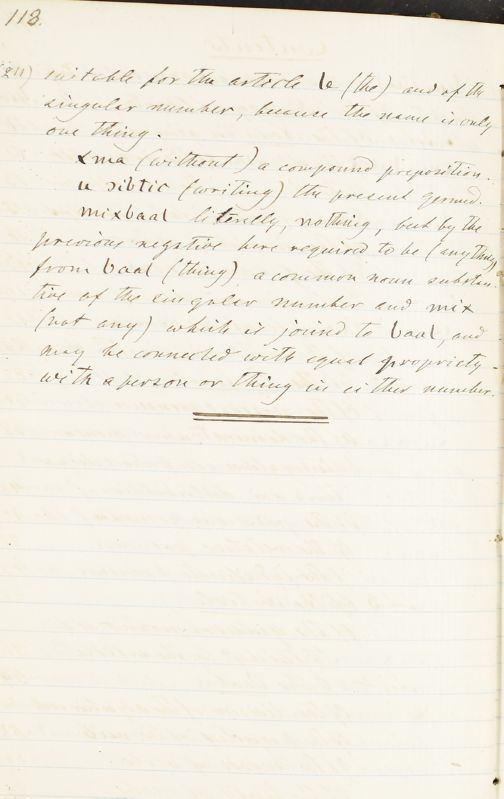 118.
suitable for the article le (the) and of the
singular number, because the name is only
one thing.
xma (without) a compound preposition.
u dibtic (writing) the present gerund.
mixbaal literally, nothing, but by the
previous negative here required to be (any thing)
from baal (thing) a common noun substan-
tive of the singular number and mix
(not any) which is joind to baal, and
may be connected with equal propriety
with a person or thing in either number.